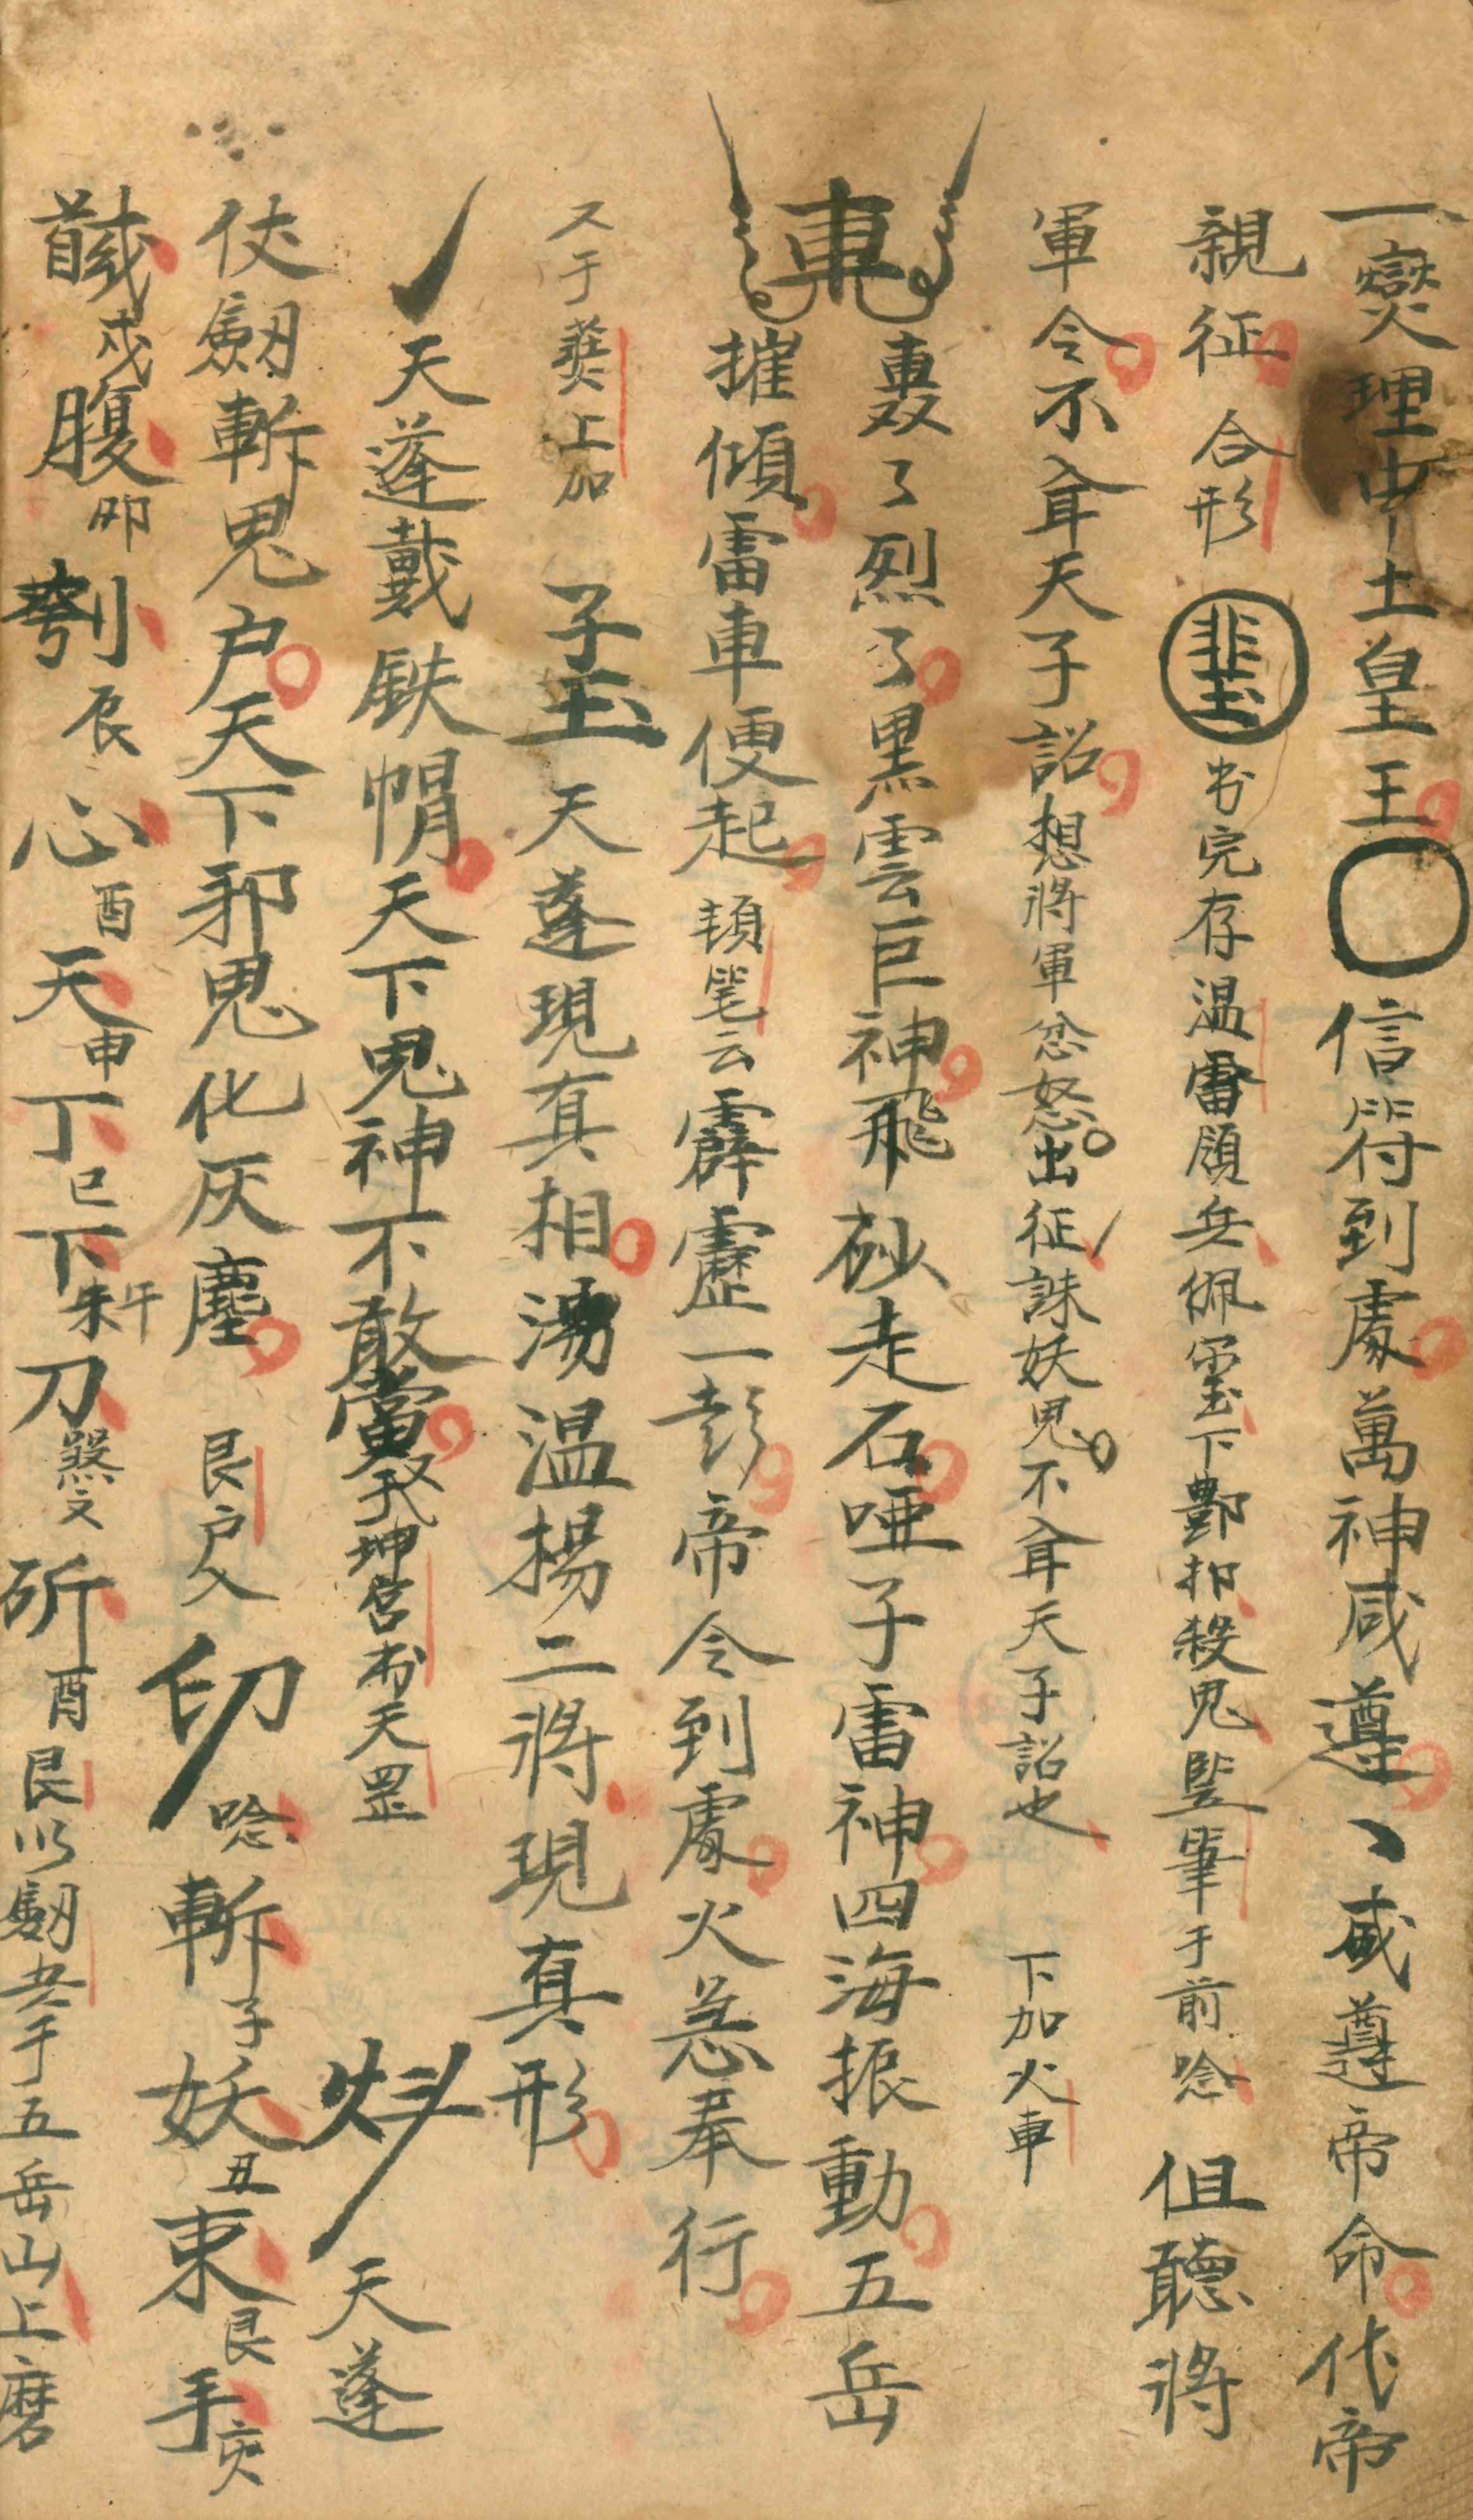 一爕理中土皇王信符到處萬神咸遵、咸遵帝命代帝
親征合形书完存温雷領兵佩下酆扣殺鬼竪筆于前唸但聽將
軍令不聞天子詔想將軍忿怒出征誅妖鬼不聞天子詔也下加火車
車轟了烈了黑雲巨神飛砂走石啞子雷神四海振動五岳
摧傾雷車便起頓笔云霹靂一彭帝令到處火急奉行
又于上加子玉天蓬現真相湯温楊二將現真形
天蓬戴鉄帽天下鬼神不敢當坤宫天罡天蓬
仗劒斬鬼户天下邪鬼化灰塵艮户入印唸斬子妖丑束艮手亥
馘戌腹卯刳辰心酉天申丁巳下未午刀煞文斫酉艮以劒于五岳山上磨